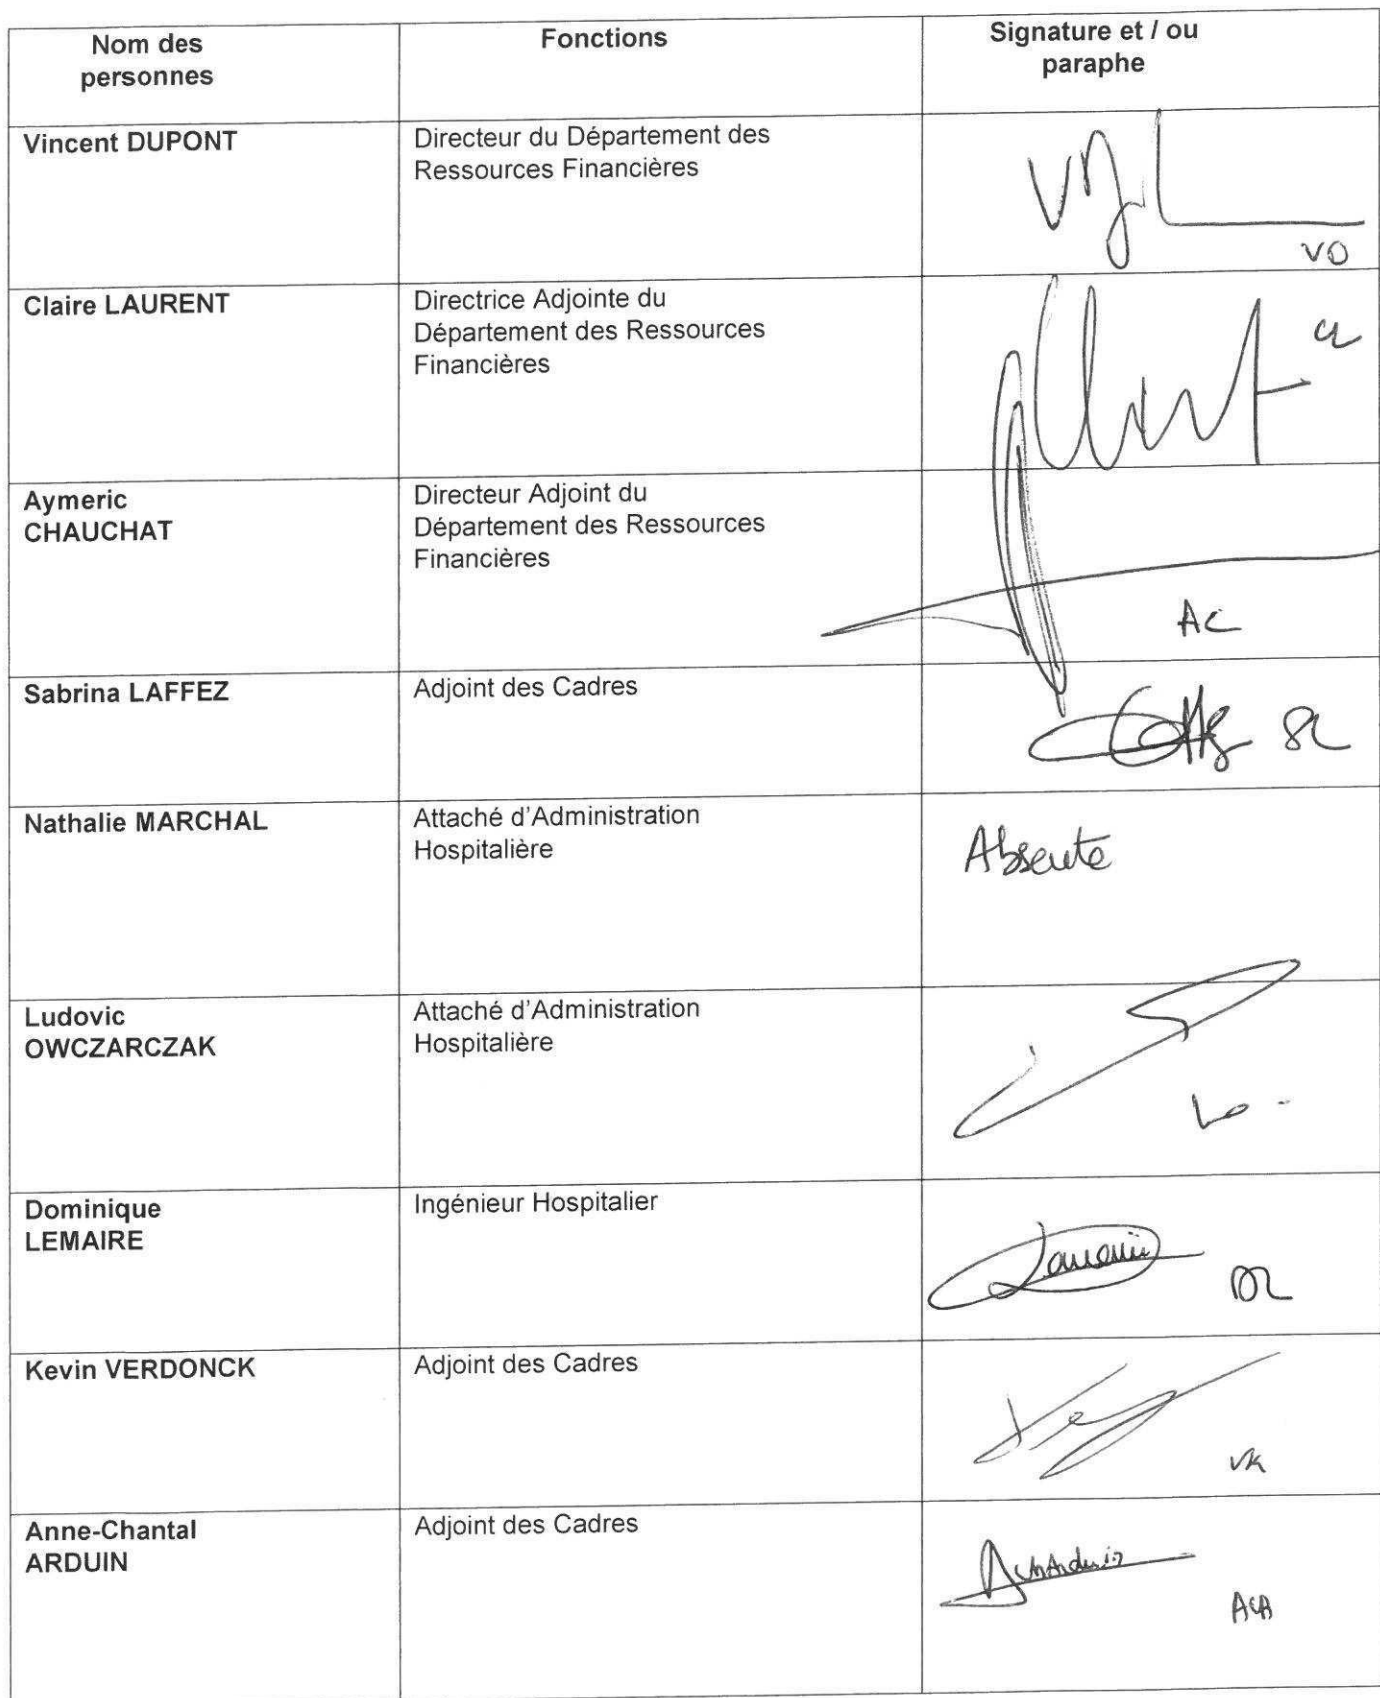 Nom des
personnes
Fonctions
Signature et / ou
paraphe
Vincent DUPONT
Directeur du Département des
Ressources Financières
VD
Claire LAURENT
Directrice Adjointe du
Département des Ressources
Financières
CL
Aymeric
CHAUCHAT
Directeur Adjoint du
Département des Ressources
Financières
AC
Sabrina LAFFEZ
Adjoint des Cadres
SL
Nathalie MARCHAL
Attaché d'Administration
Hospitalière
Absente
Ludovic
OWCZARCZAK
Attaché d'Administration
Hospitalière
LO -
Dominique
LEMAIRE
Ingénieur Hospitalier
DL
Kevin VERDONCK
Adjoint des Cadres
VK
Anne-Chantal
ARDUIN
Adjoint des Cadres
ACA